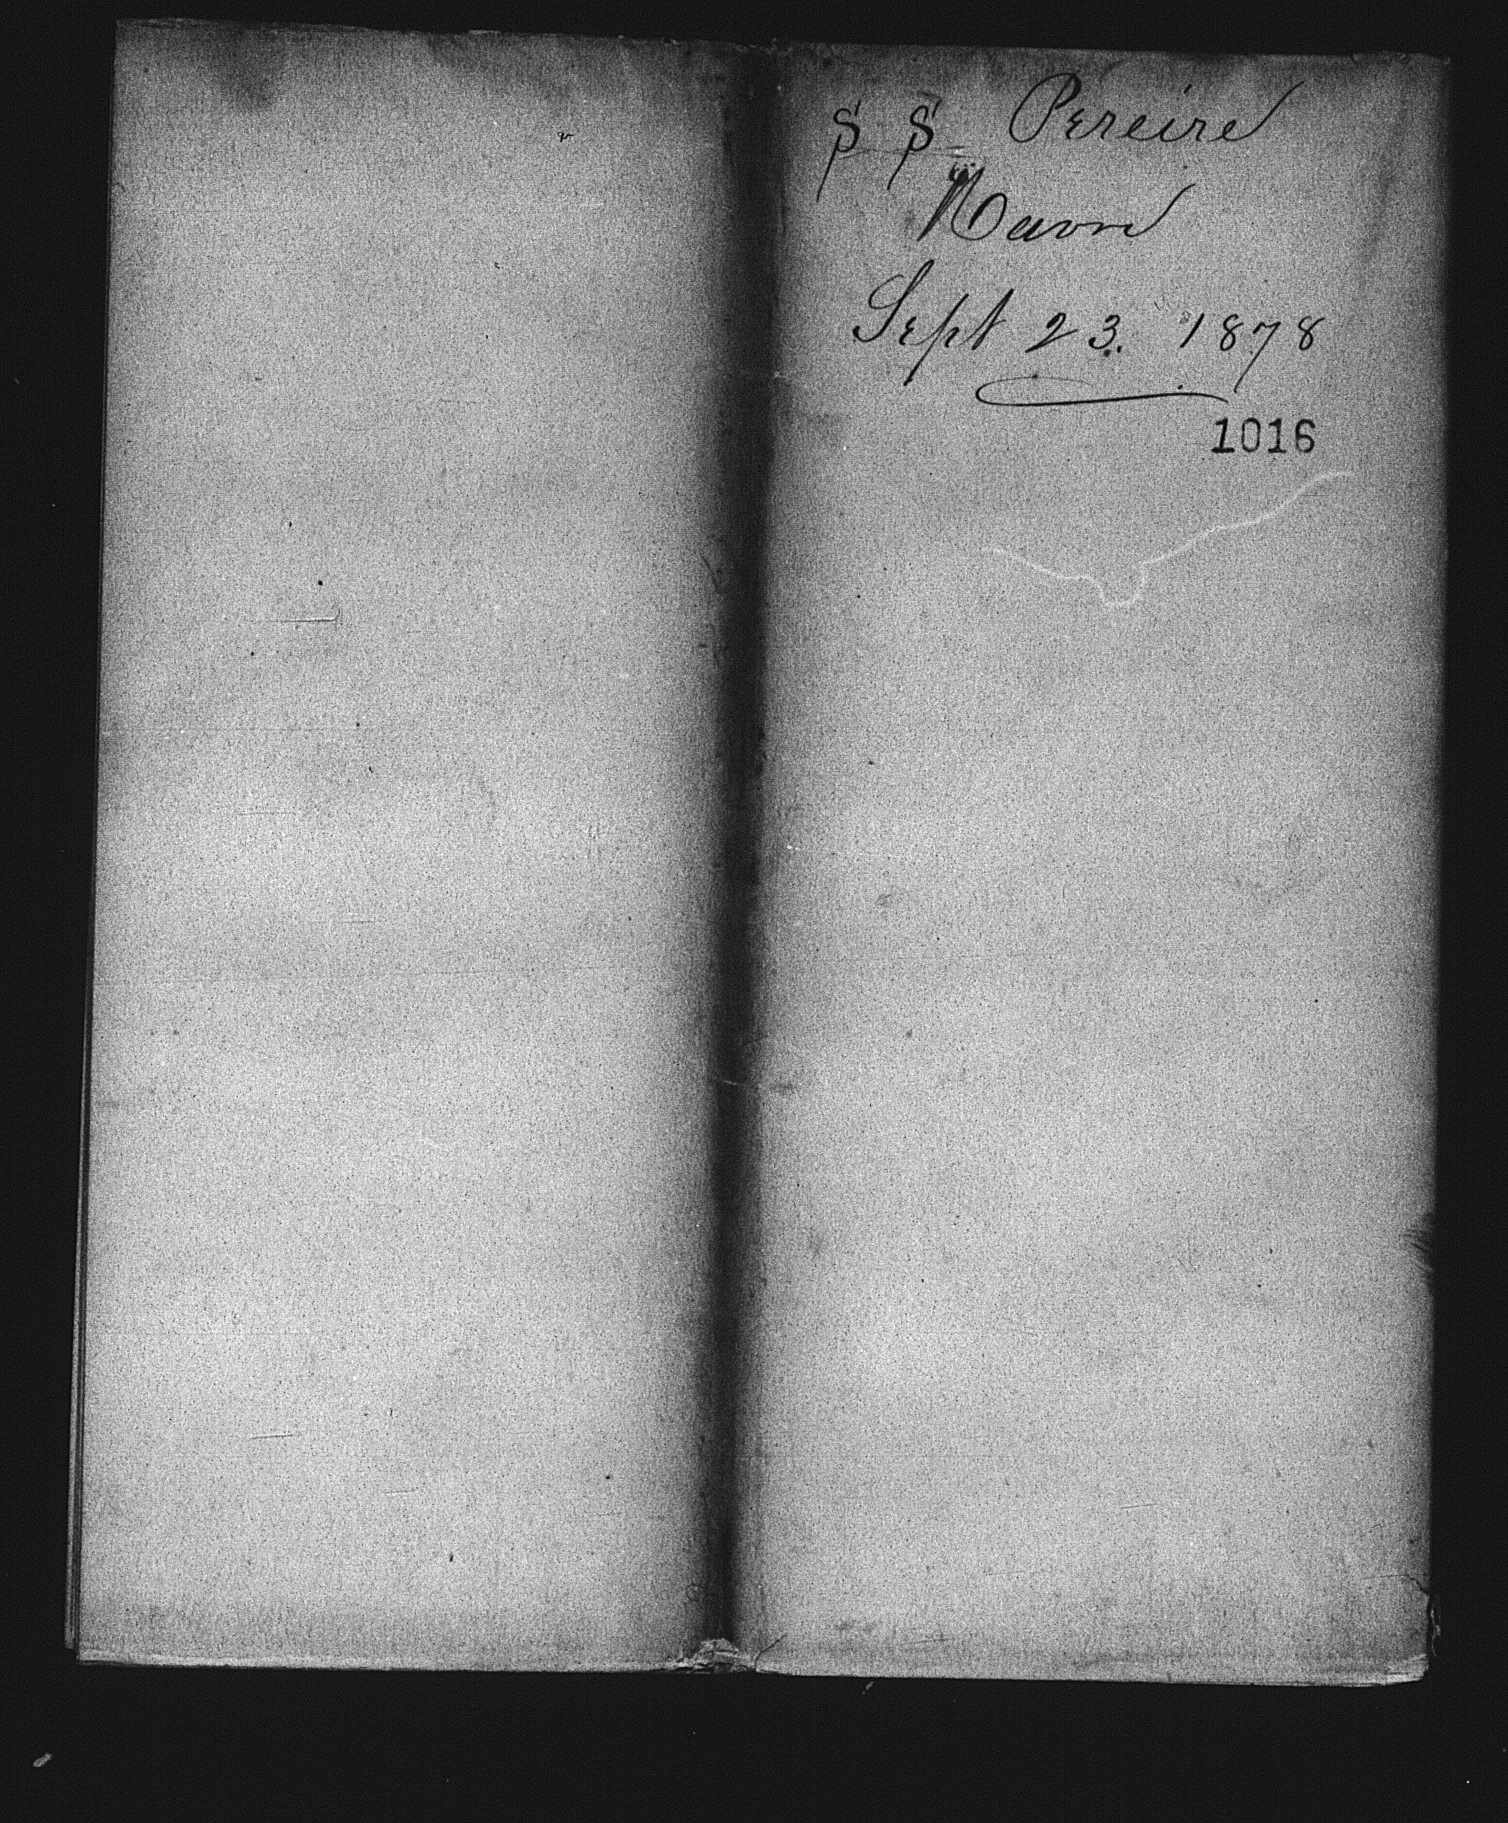 S S Pereire
Havre
Sept 23. 1878
1016